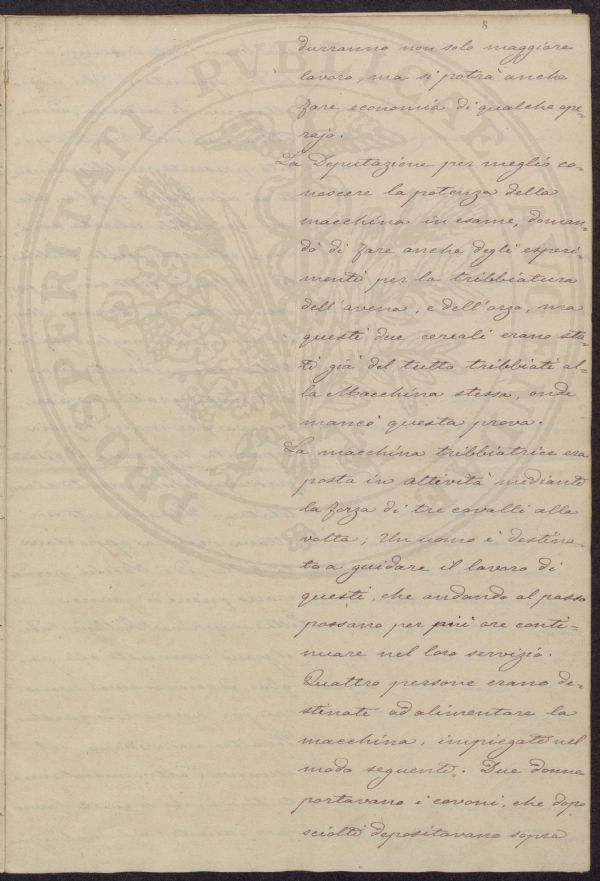 8
durranno non solo maggiore
lavoro, ma si potrà anche
fare economia di qualche ope=
rajo.
La Deputazione per meglio co=
noscere la potenza della
macchina in esame, doman=
dò di fare anche degli esperi=
menti per la tribbiatura
dell'avena, e dell'orzo, ma
questi due cereali erano sta=
ti già del tutto tribbiati al=
la Macchina stessa, onde
mancò questa prova.
La macchina tribbiatrice era
posta in attività mediante
la forza di tre cavalli alla
volta; Un uomo è destina=
to a guidare il lavoro di
questi, che andando al passo
possano per più ore conti=
nuare nel loro servizio.
Quattro persone erano de=
stinate ad alimentare la
macchina, impiegate nel
modo seguente. Due donne
portavano i covoni, che dopo
sciolti depositavano sopra
PROSPERITATI PVBLICAE